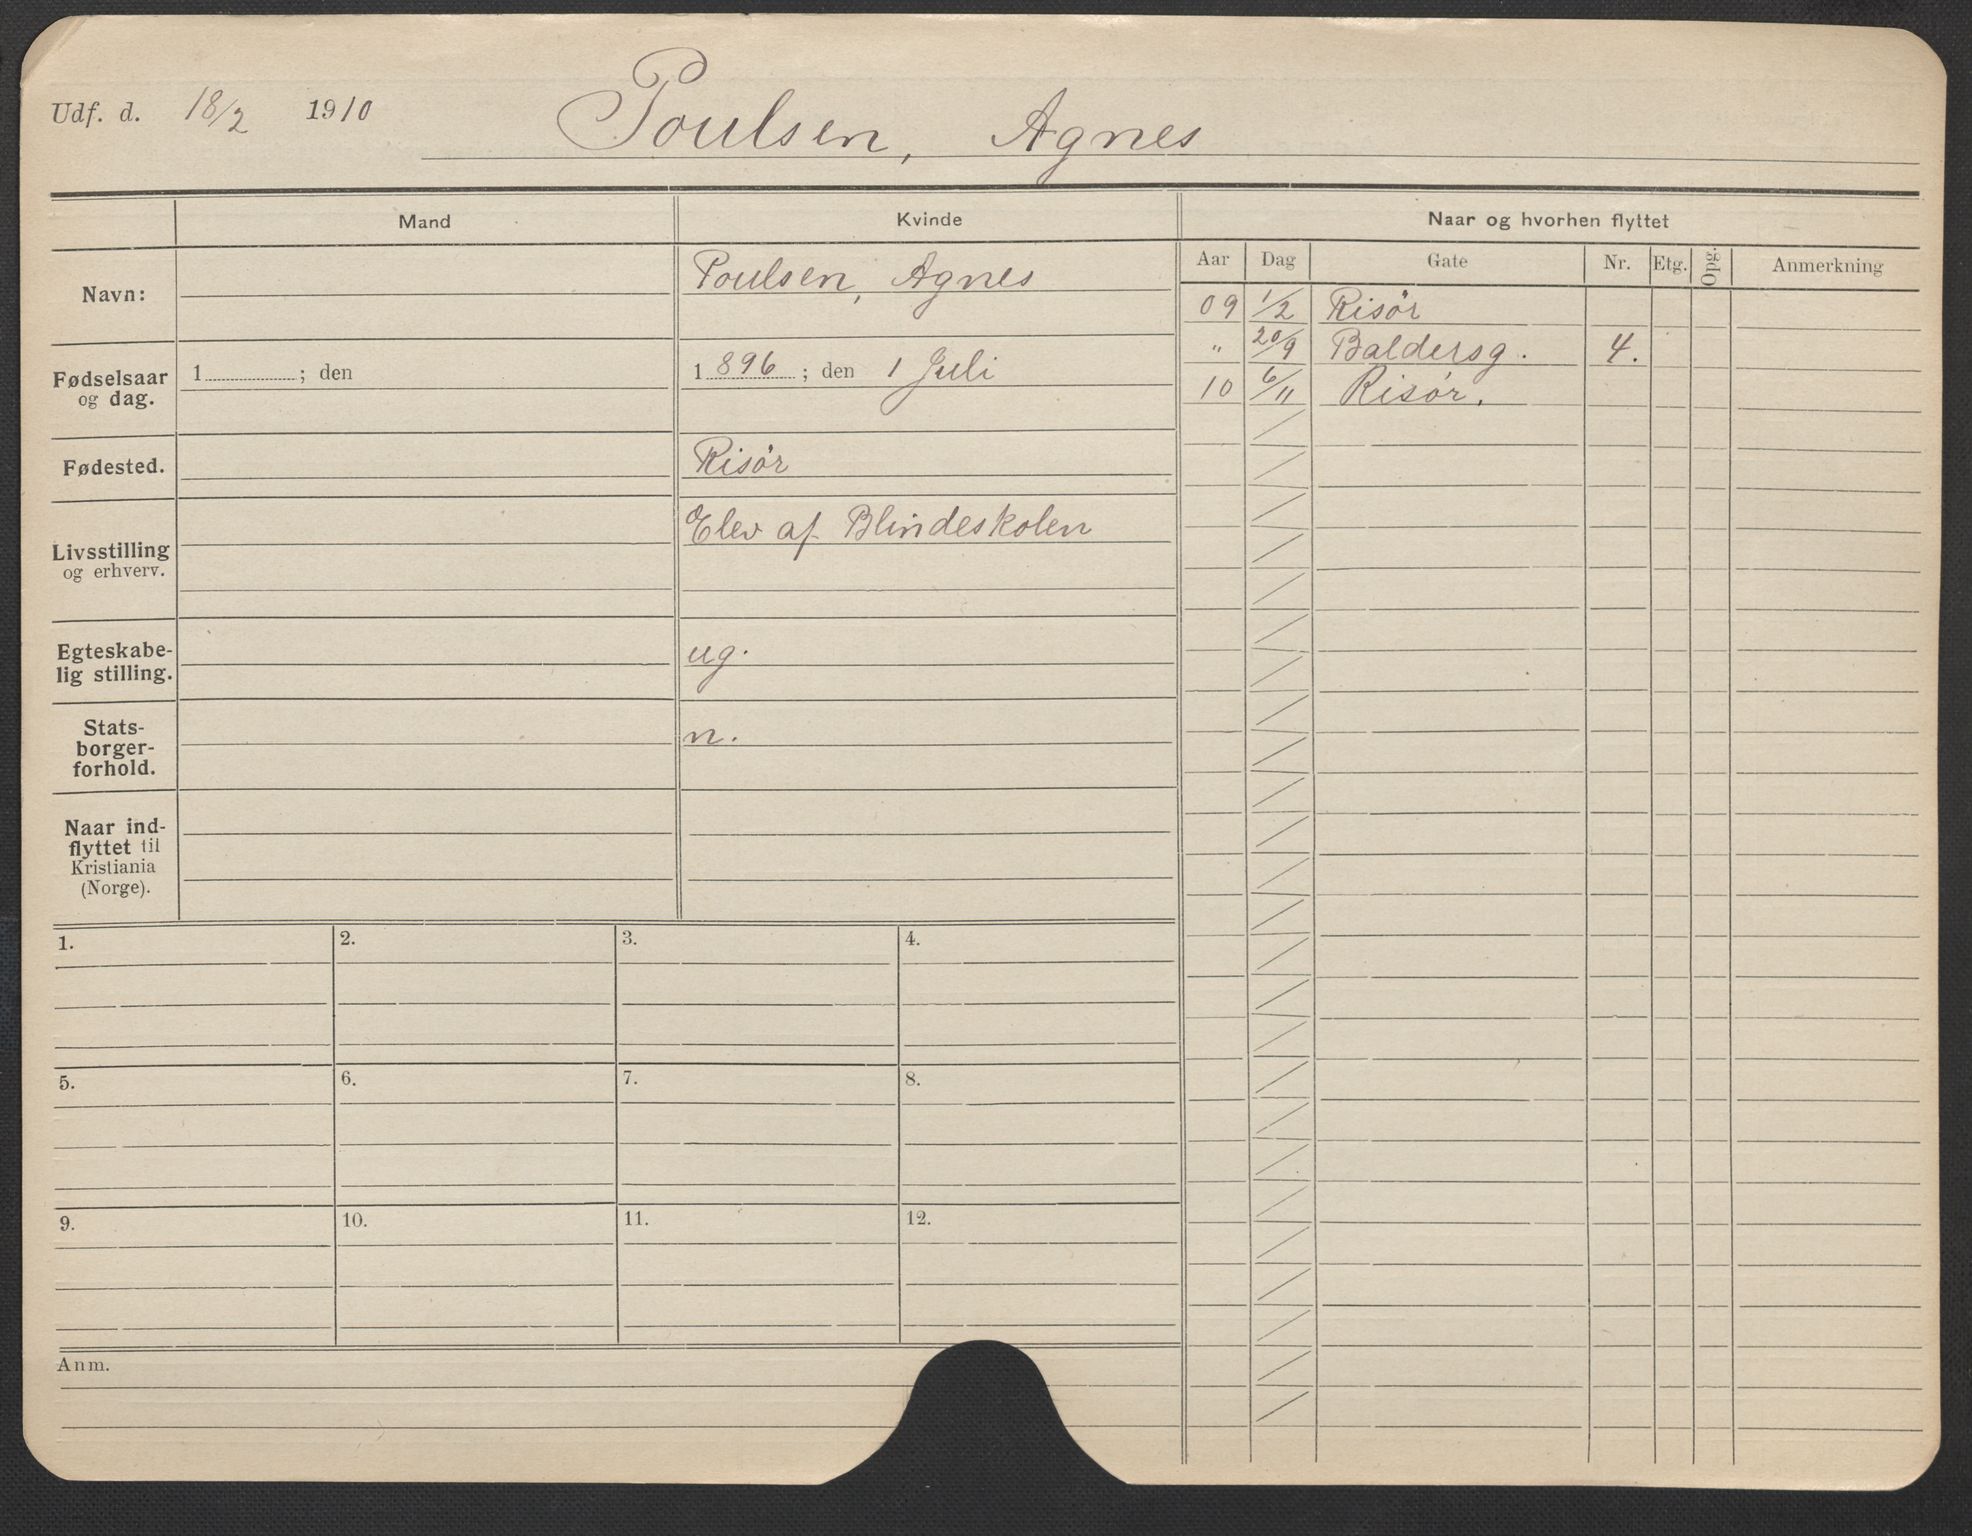 Udf. d. 18/2 1910 Poulsen, Agnes
Mand Kvinde Naar og hvorhen flyttet
Aar Dag Gate Nr. Etg. Opg. Anmerkning
Navn: Poulsen, Agnes
09 1/2 Risör
" 20/9 Baldersg. 4.
10 6/11 Risör.
Fødselsaar og dag. 1 ; den 1896 ; den 1 Juli
Fødested. Risör
Livsstilling og erhverv. Elev af Blindeskolen
Egteskabe-
lig stilling. ug.
Stats-
borger-
forhold. n.
Naar ind-
flyttet til
Kristiania
(Norge).
1. 2. 3. 4.
5. 6. 7. 8.
9. 10. 11. 12.
Anm.